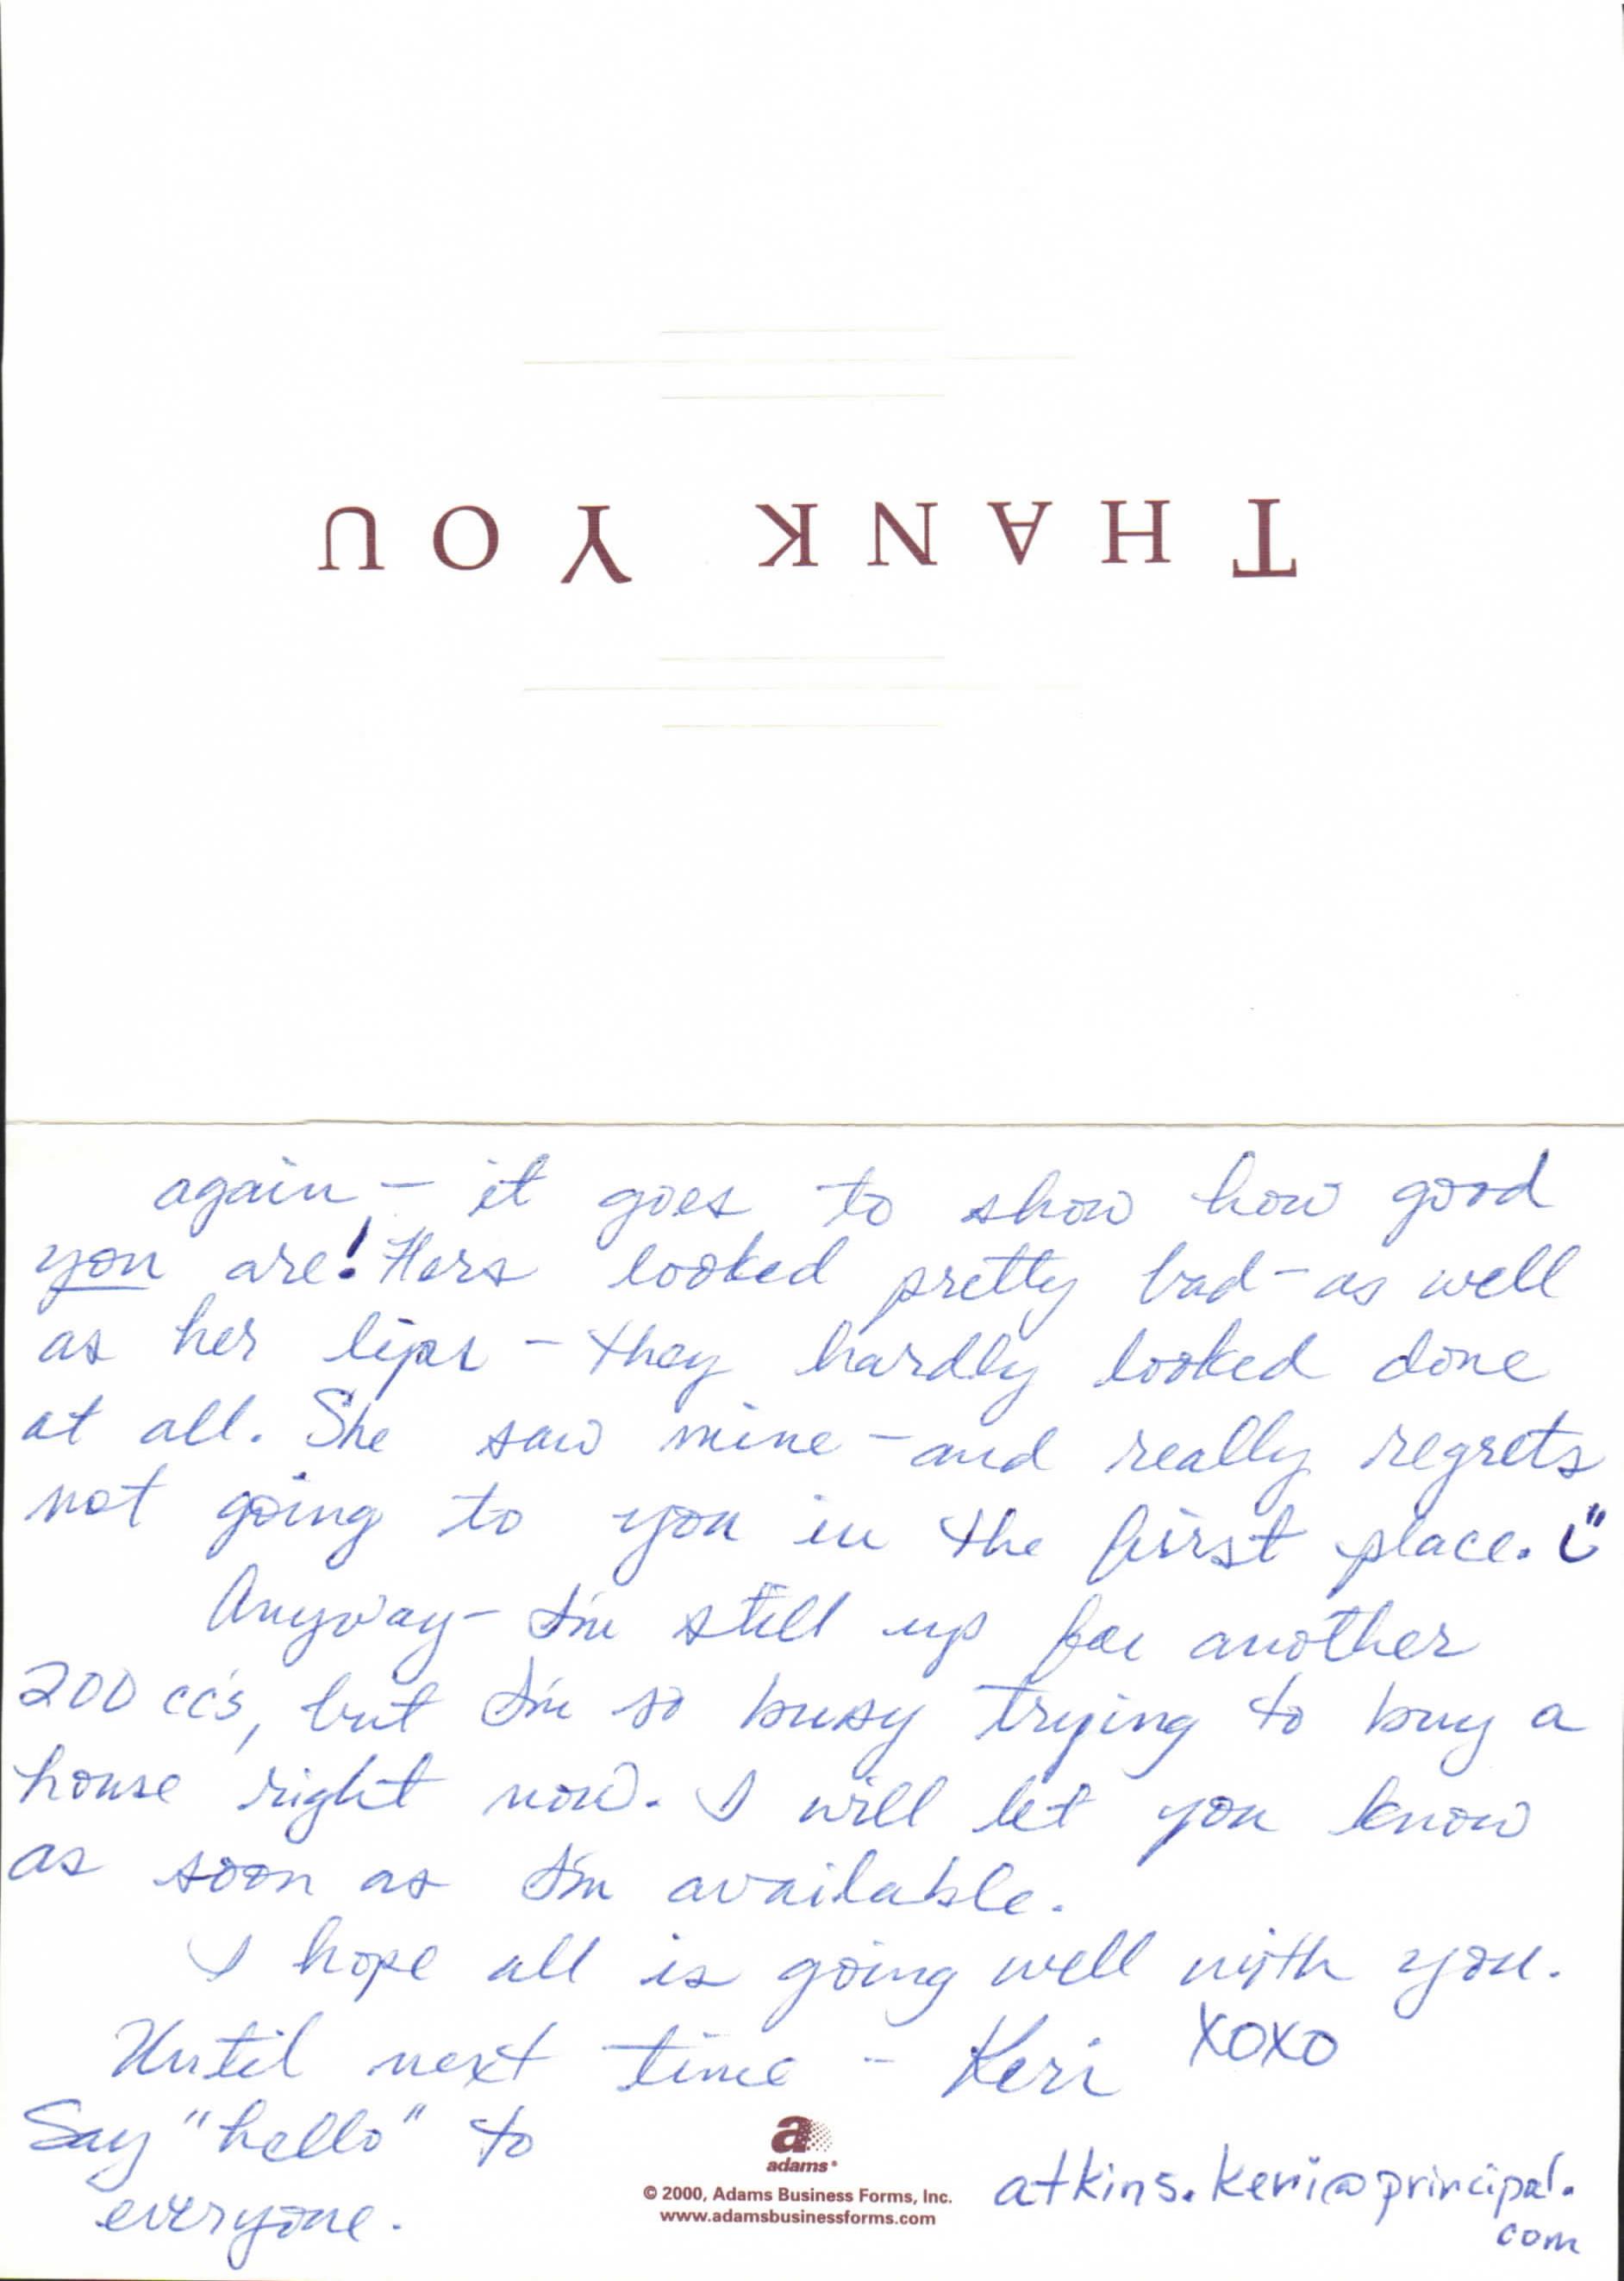 THANK YOU
again - it goes to show how good
you are! Hers looked pretty bad - as well
as her lips - they hardly looked done
at all. She saw mine - and really regrets
not going to you in the first place.
Anyway - I'm still up for another
200 cc's, but I'm so busy trying to buy a
house right now. I will let you know
as soon as I'm available.
I hope all is going well with you.
Until next time - Keri XOXO
Say "hello" to
everyone.
a
adams®
© 2000, Adams Business Forms, Inc.
www.adamsbusinessforms.com
atkins.keri@principal.
com